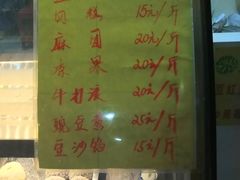 15元/斤
麻圆 20元/斤
京果 20元/斤
牛打滚 20元/斤
豌豆黄 25元/斤
豆沙馅 15元/斤